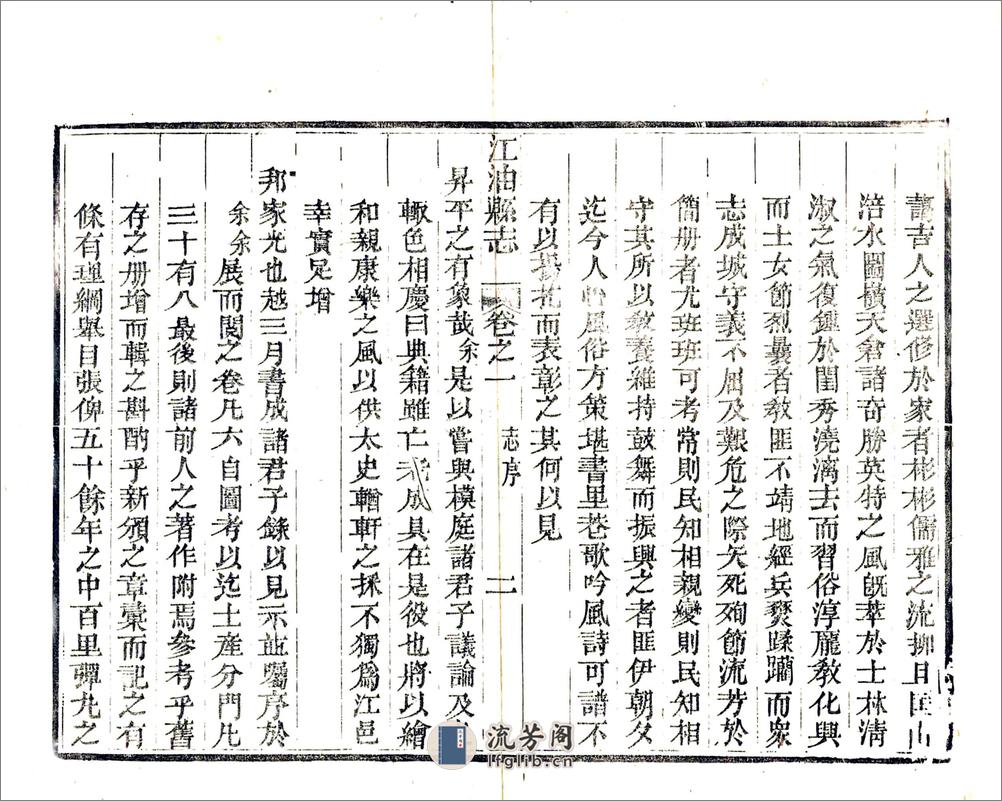 藹吉人之選修於家者彬彬儒雅之流抑且匡山
涪水圌橫天倉諸奇勝英特之風旣萃於士林淸
淑之氣復鍾於閨秀澆漓去而習俗淳龐敎化興
而士女節烈曩者敎匪不靖地經兵燹蹂躪而衆
志成城守義不屈及艱危之際矢死殉節流芳於
簡册者尤班班可考常則民知相親變則民知相
守其所以敎養維持鼓舞而振興之者匪伊朝夕
迄今人怡風俗方策堪書里巷歌吟風詩可譜不
有以 而表彰之其何以見
江油縣志 卷之一 志序 二
昇平之有象哉余是以嘗與模庭諸君子議論及
輙色相慶曰典籍雖亡老成具在是役也將以繪
和親康樂之風以供太史輶軒之採不獨爲江邑
幸實足增
邦家光也越三月書成諸君子錄以見示並囑序於
余余展而閱之卷凡六自圖考以迄土產分門凡
三十有八最後則諸前人之著作附焉參考乎舊
存之册增而輯之斟酌乎新頒之章彙而記之有
條有理綱舉目張俾五十餘年之中百里彈丸之
流芳阁
lfglib.cn